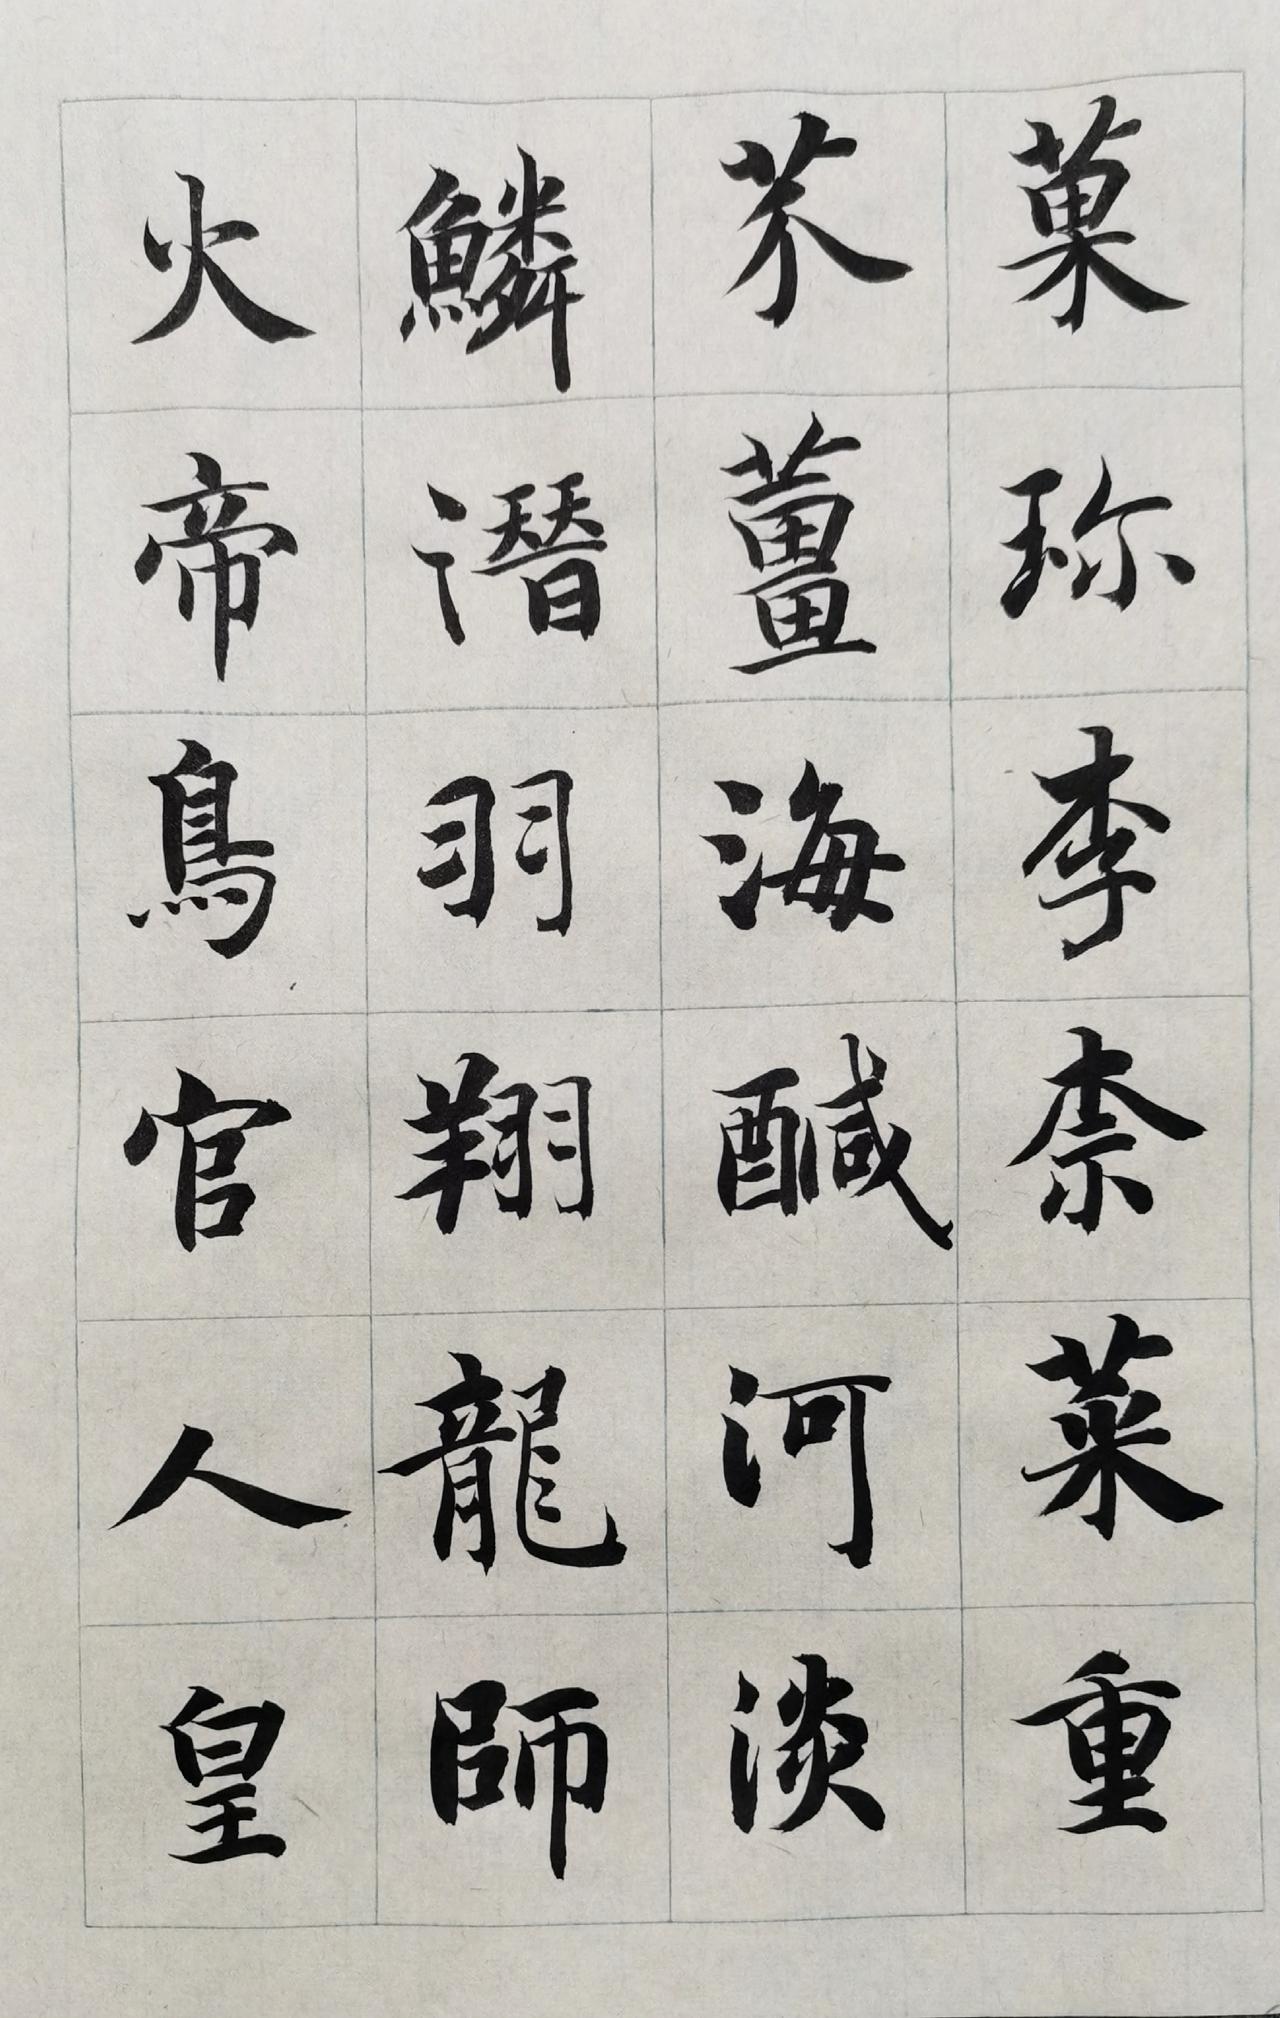 菓珎李柰菜重
芥薑海醎河淡
鱗潛羽翔龍師
火帝鳥官人皇